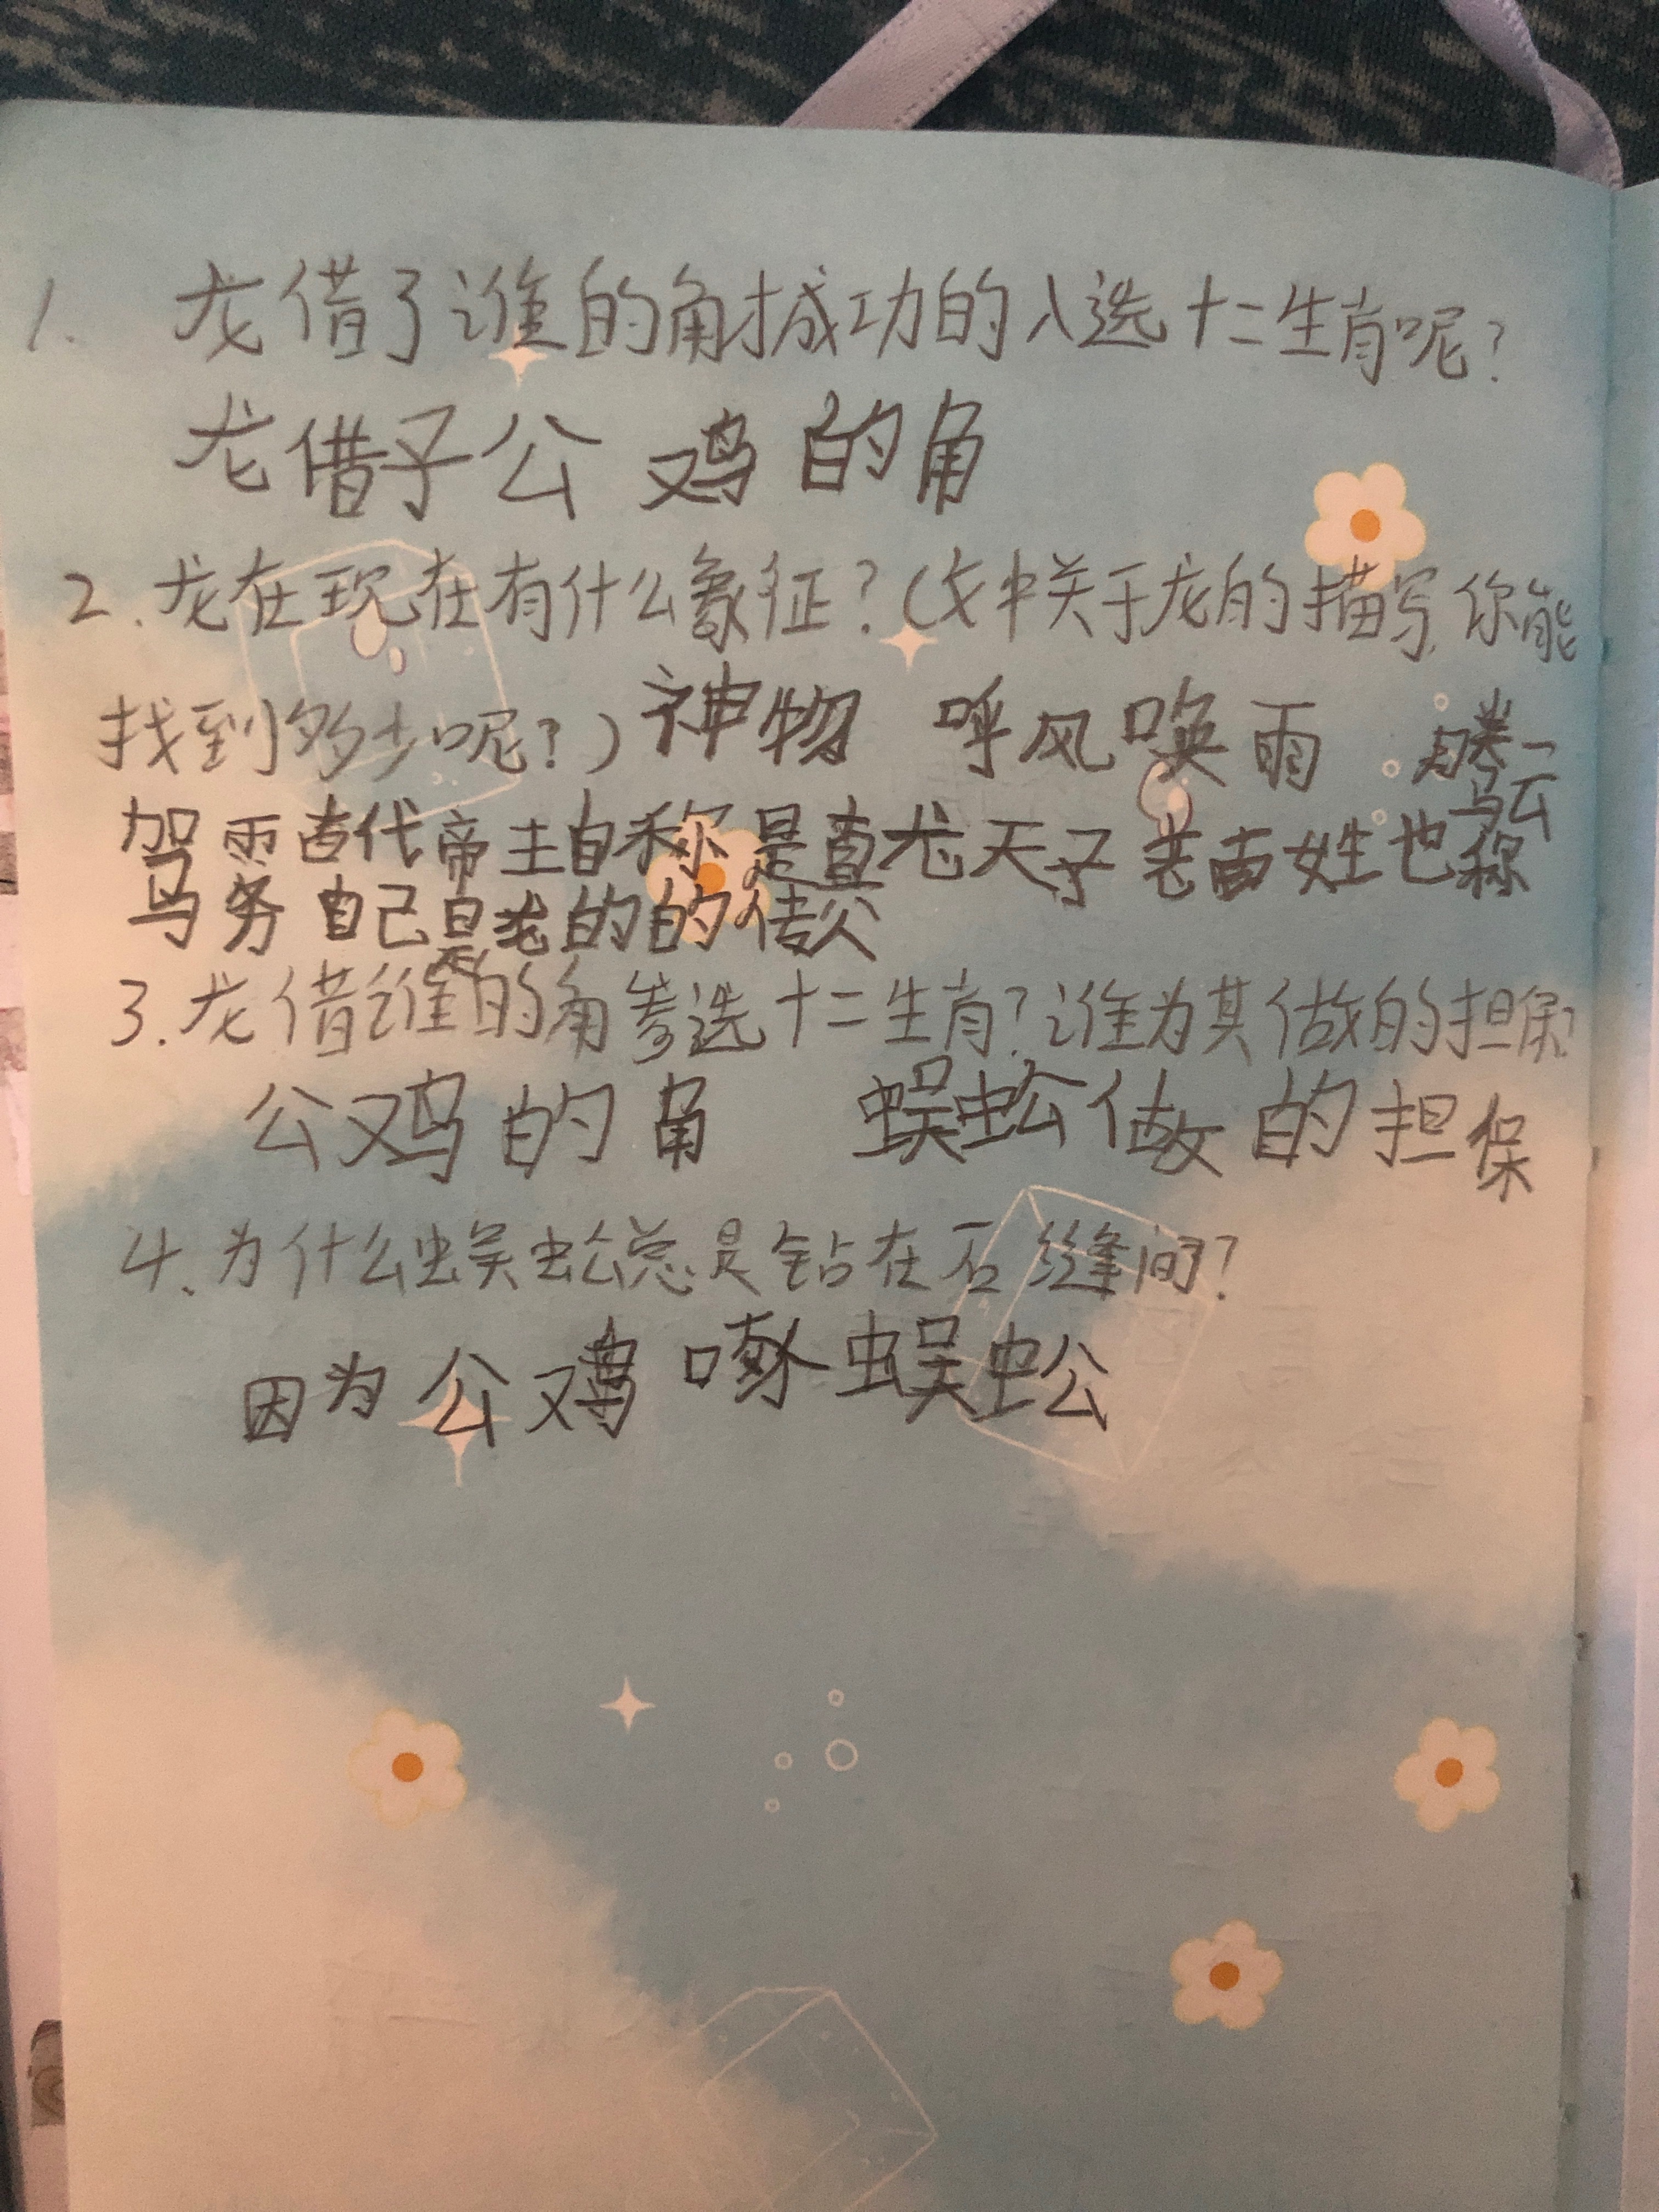 1. 龙借了谁的角才成功的入选十二生肖呢?
龙借子公鸡的角
2. 龙在现在有什么象征?(文中关于龙的描写,你能
找到多少呢?)神物 呼风唤雨 腾云
驾雾古代帝王自称是真龙天子老百姓也称
自己是龙的的传人
3. 龙借谁的角参选十二生肖?谁为其做的担保?
公鸡的角 蜈蚣做的担保
4. 为什么蜈蚣总是钻在石缝间?
因为公鸡啄蜈蚣